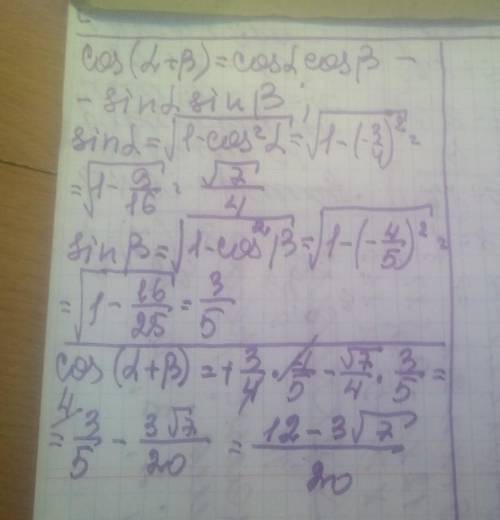 cos(α+β)=cosα cosβ −
− sinα sinβ
sinα=√(1−cos²α)=√(1−(−3/4)²)=
=√(1−9/16)=√7/4
sinβ=√(1−cos²β)=√(1−(−4/5)²)=
=√(1−16/25)=3/5
cos(α+β)=+3/4·4/5−√7/4·3/5=
=3/5−3√7/20=(12−3√7)/20